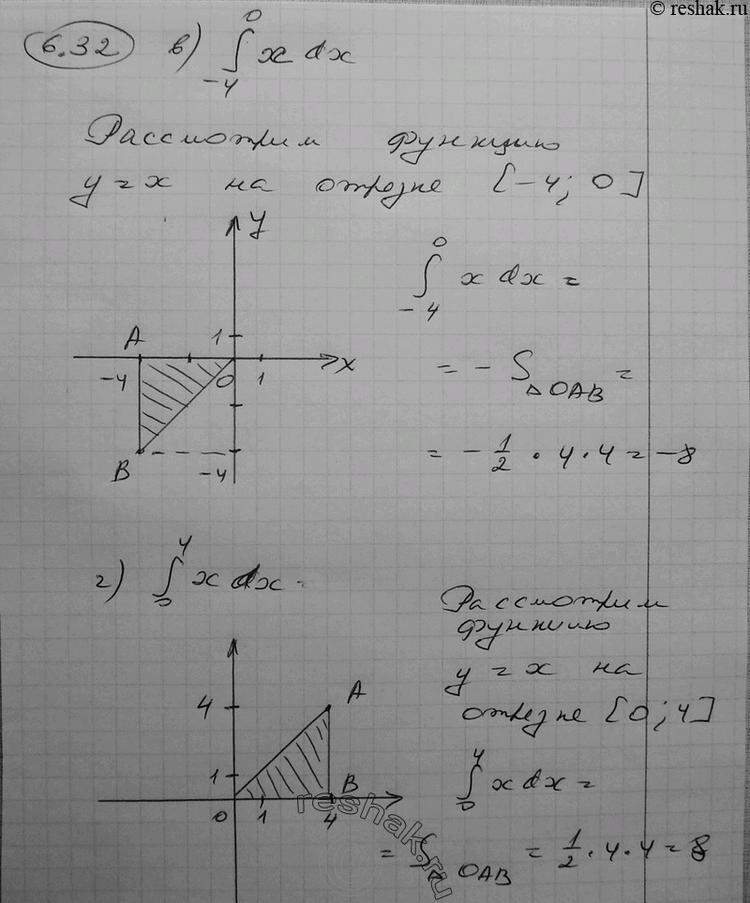 © reshak.ru
6.32 в) ∫₋₄⁰ x dx
Рассмотрим функцию
y = x на отрезке [-4; 0]
y
A 1
-4 0 1 x
B -4
∫₋₄⁰ x dx =
= - S△OAB =
= - 1/2 · 4 · 4 = -8
г) ∫₀⁴ x dx
4 A
1 B
0 1 4
Рассмотрим
функцию
y = x на
отрезке [0; 4]
∫₀⁴ x dx =
= S△OAB = 1/2 · 4 · 4 = 8
reshak.ru